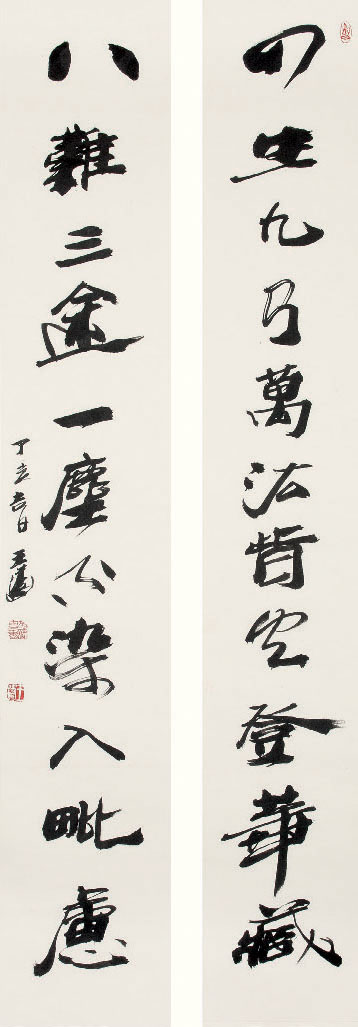 四生九有萬法皆空登華藏
八難三途一塵不染入毗慮
丁亥吉日 王